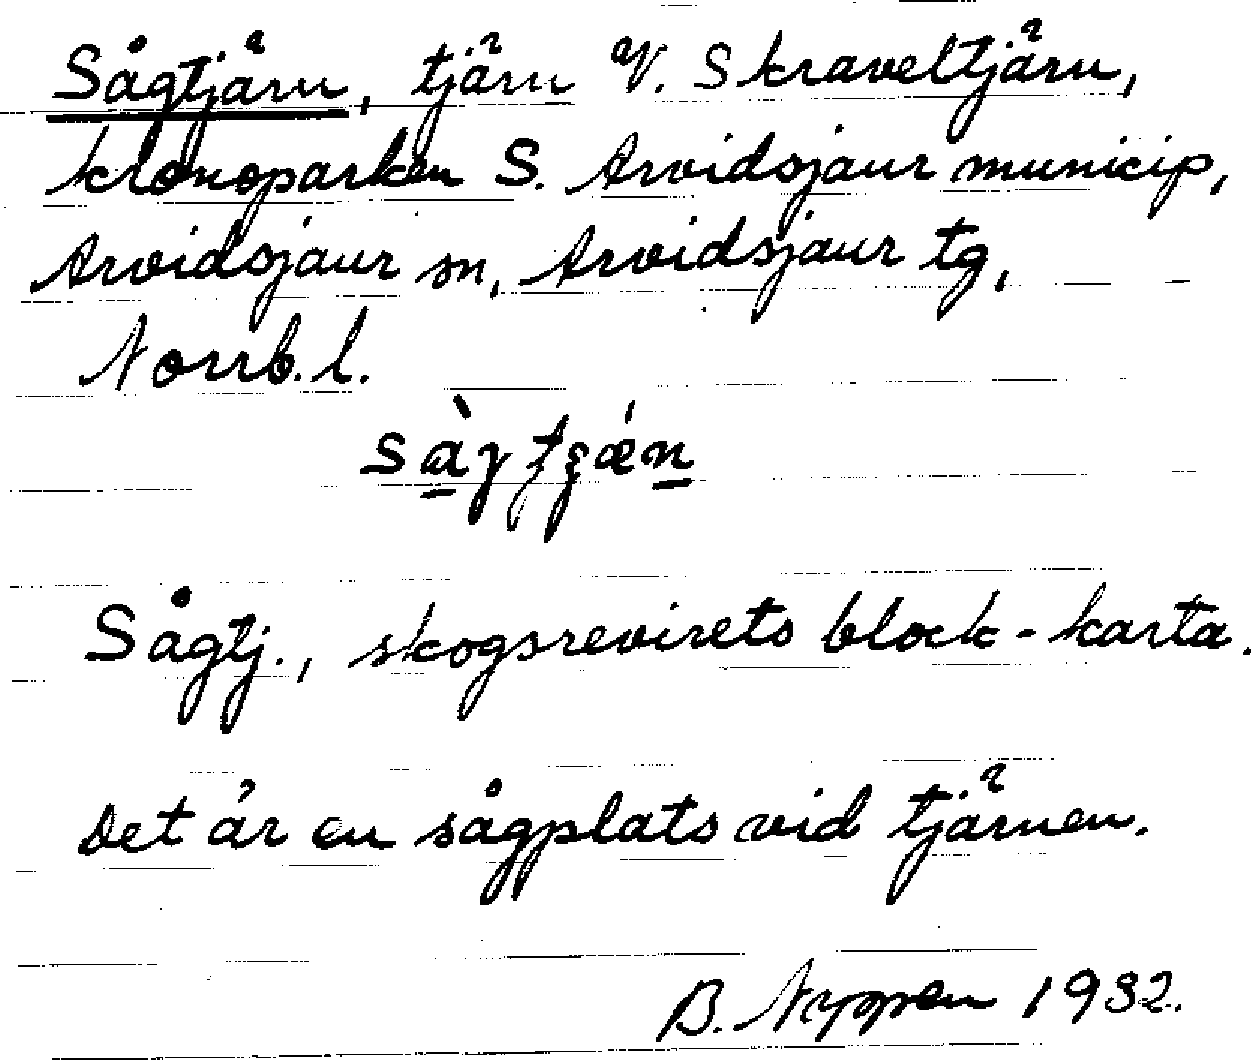 Sågtjärn, tjärn V. Skraveltjärn,
kronoparken S. Arvidsjaur municip,
Arvidsjaur sn, Arvidsjaur tg,
Norrb. l.
Sågtj., skogsrevirets block-karta.
Det är en sågplats vid tjärnen.
B. 1932.